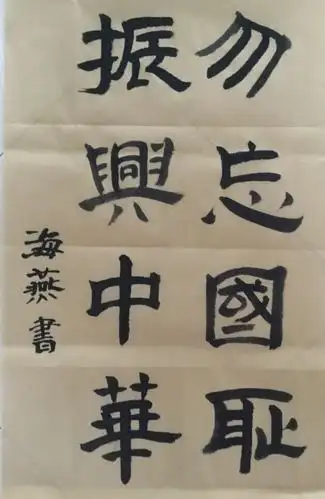 勿忘國耻
振興中華
海燕書